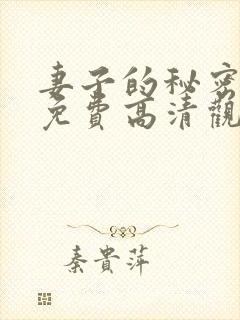 妻子的秘密
免费高清觀
秦貴萍